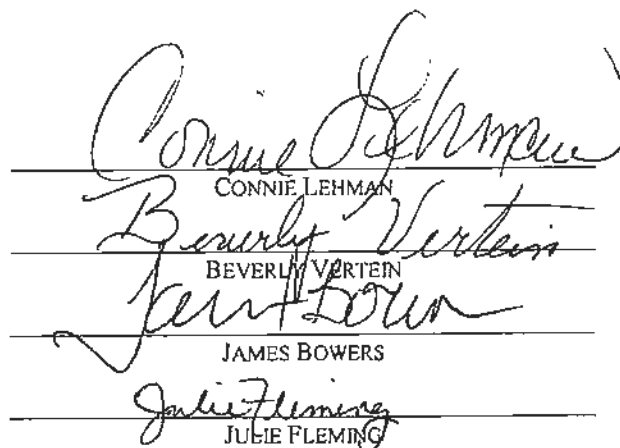 Connie Lehman
CONNIE LEHMAN
Beverly Vertein
BEVERLY VERTEIN
JAMES BOWERS
Julie Fleming
JULIE FLEMING